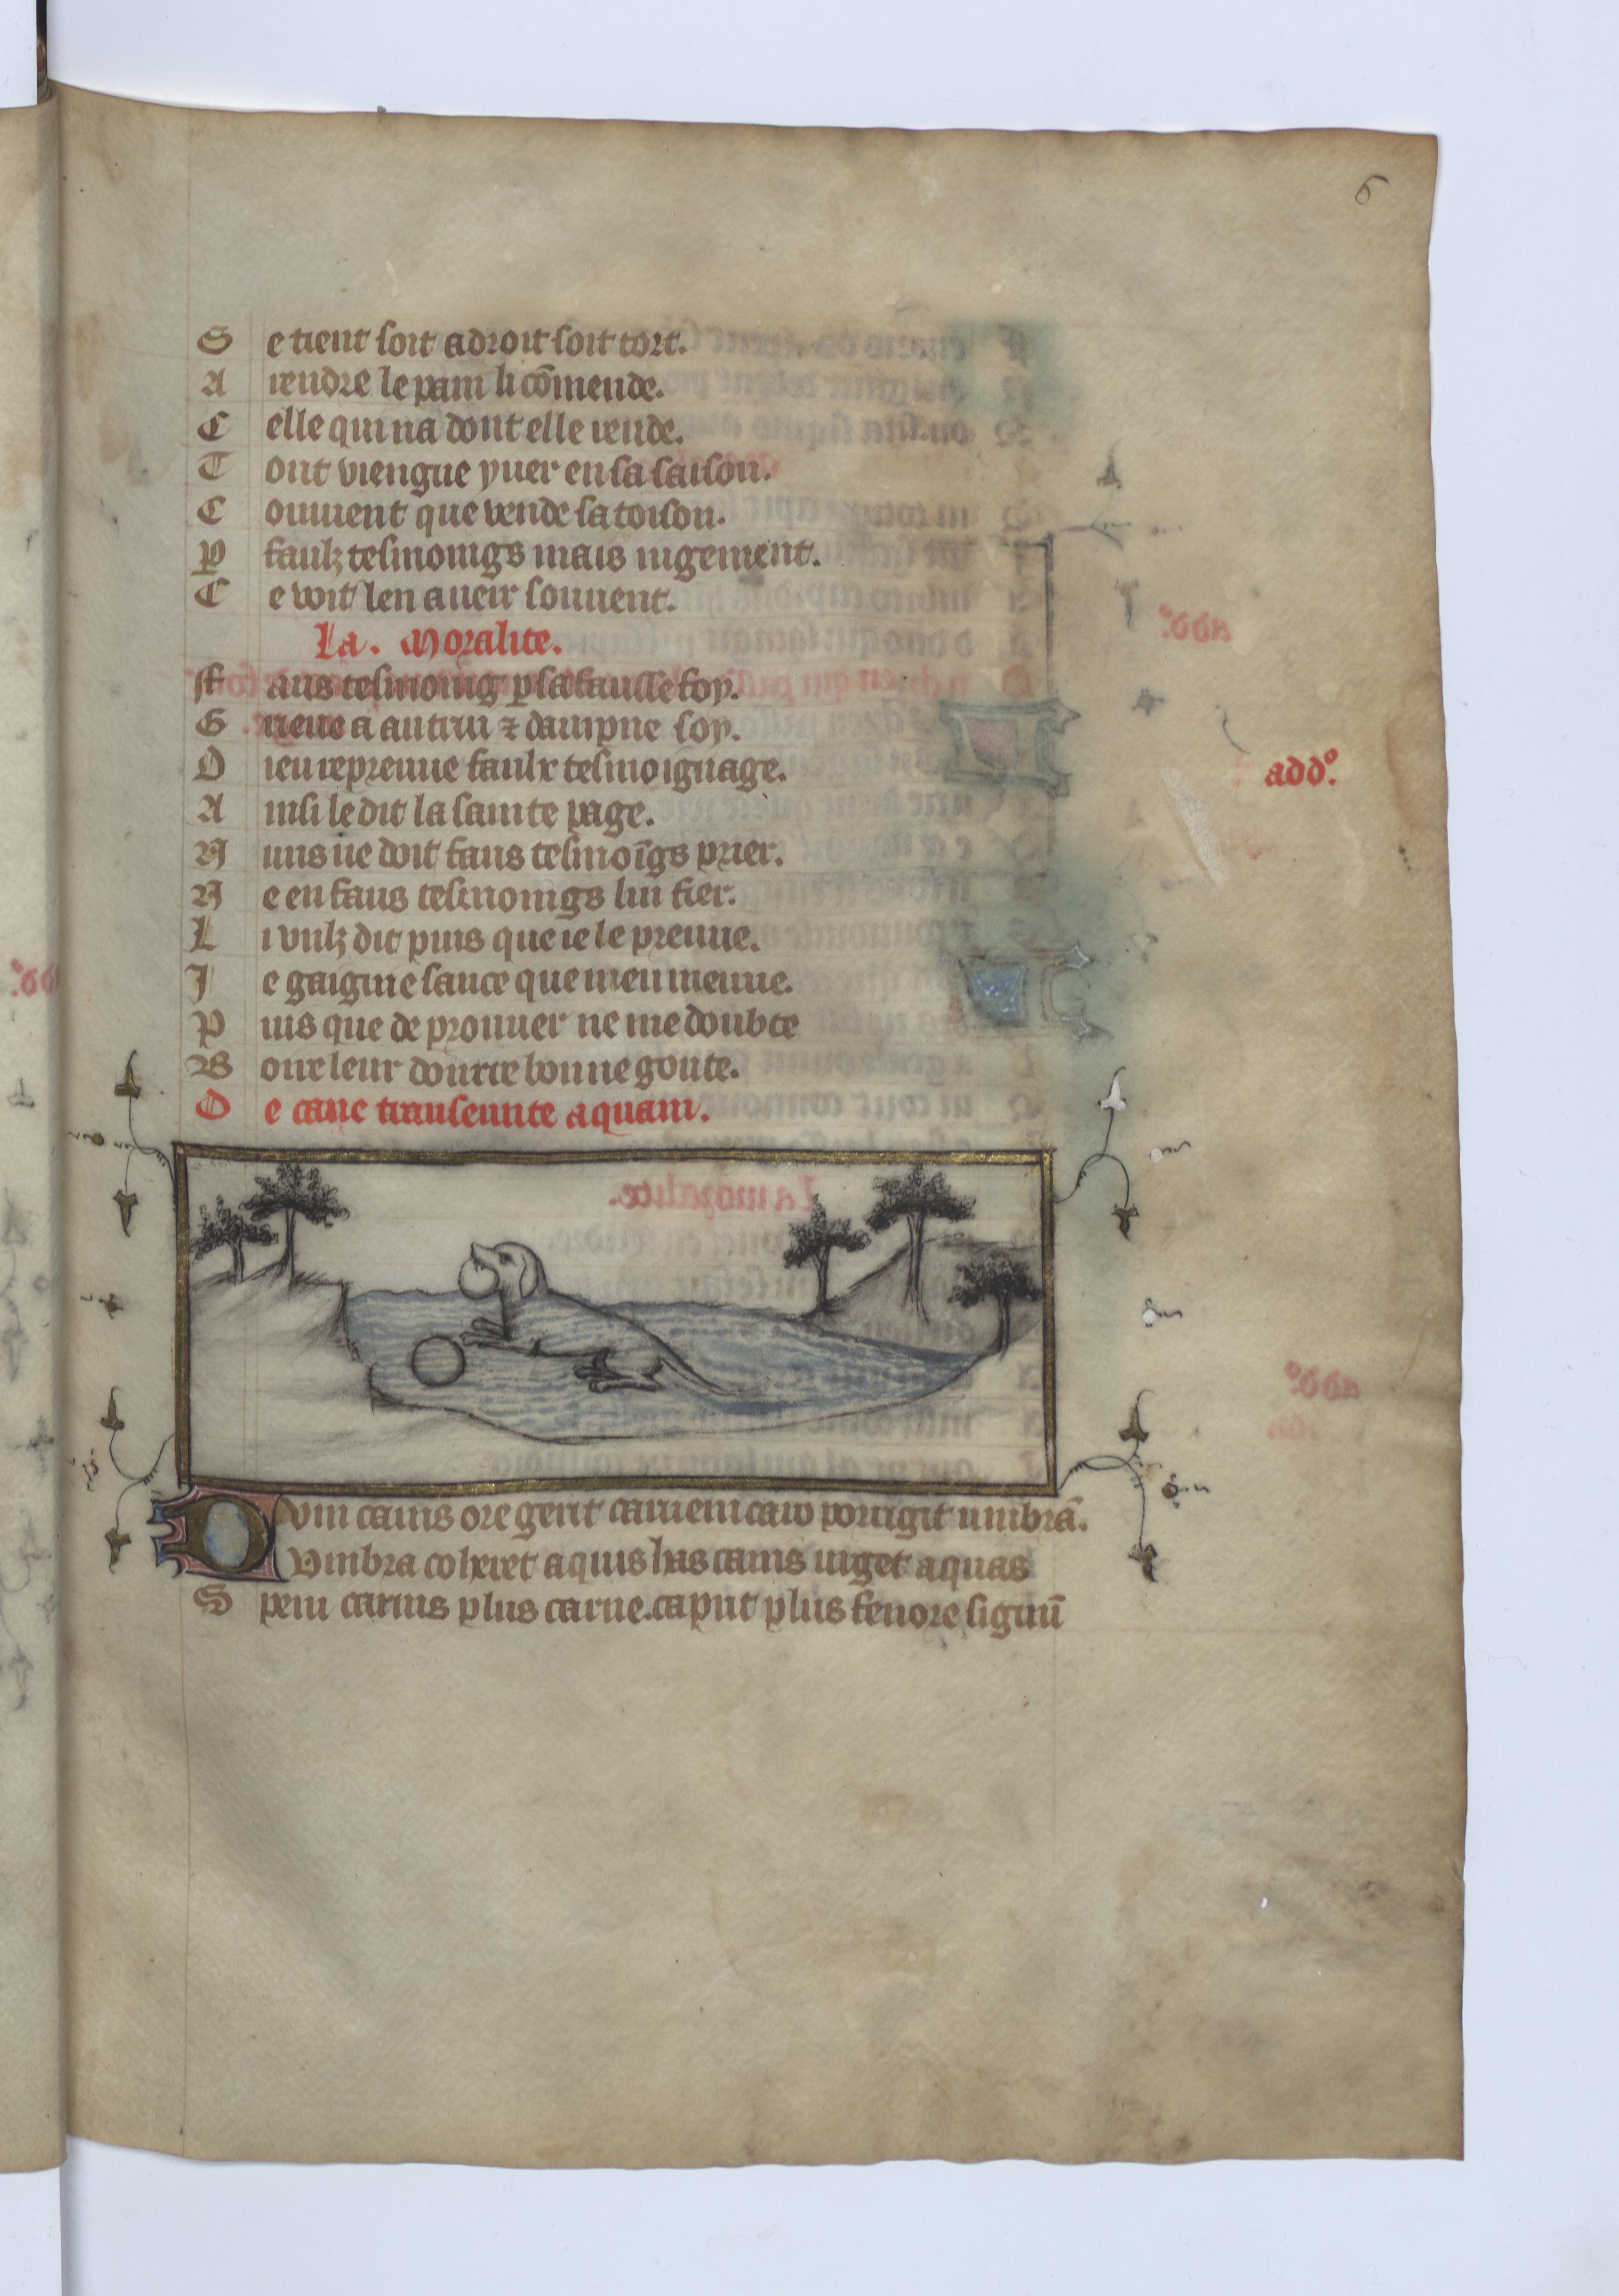 6
Se tient soit a droit soit tort.
A rendre le pain li cõmende.
Celle qui na dont elle rende.
Tont viengne yuer en sa saison.
Conuient que vende sa toison.
P faulz tesmoings mais iugement.
Ce voit len aueir souuent.
La. Moralite.
Faus tesmoing p sa faulse foy.
Grieue a autrui ⁊ dampne soy.
Dieu repreuue faulx tesmoignage.
add.º
Ainsi le dit la sainte page.
Nuns ne doit faus tesmoĩgs prier.
Ne en faus tesmoings lui fier.
Li vulz dit puis que ie le preuue.
Je gaigne sauce que meu meuue.
Puis que de prouuer ne me doubte
Boire leur donrre bonne goute.
De cane transeunte aquam.
Dum canis ore gerit carnem caro porrigit umbrã.
Vmbra coheret aquis has canis urget aquas
Spem carnis plus carne. caput plus fenore signũ